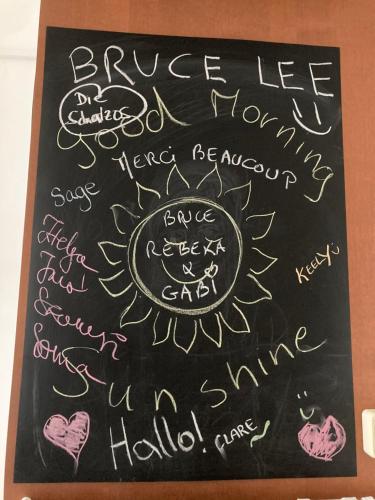 BRUCE LEE
Die
Good Morning
MERCi BEAUCOUP
Sage
BRUCE
REBEKA
&
GABI
Helga
KEELY
Sonia
Sunshine
Hallo!
CLARE